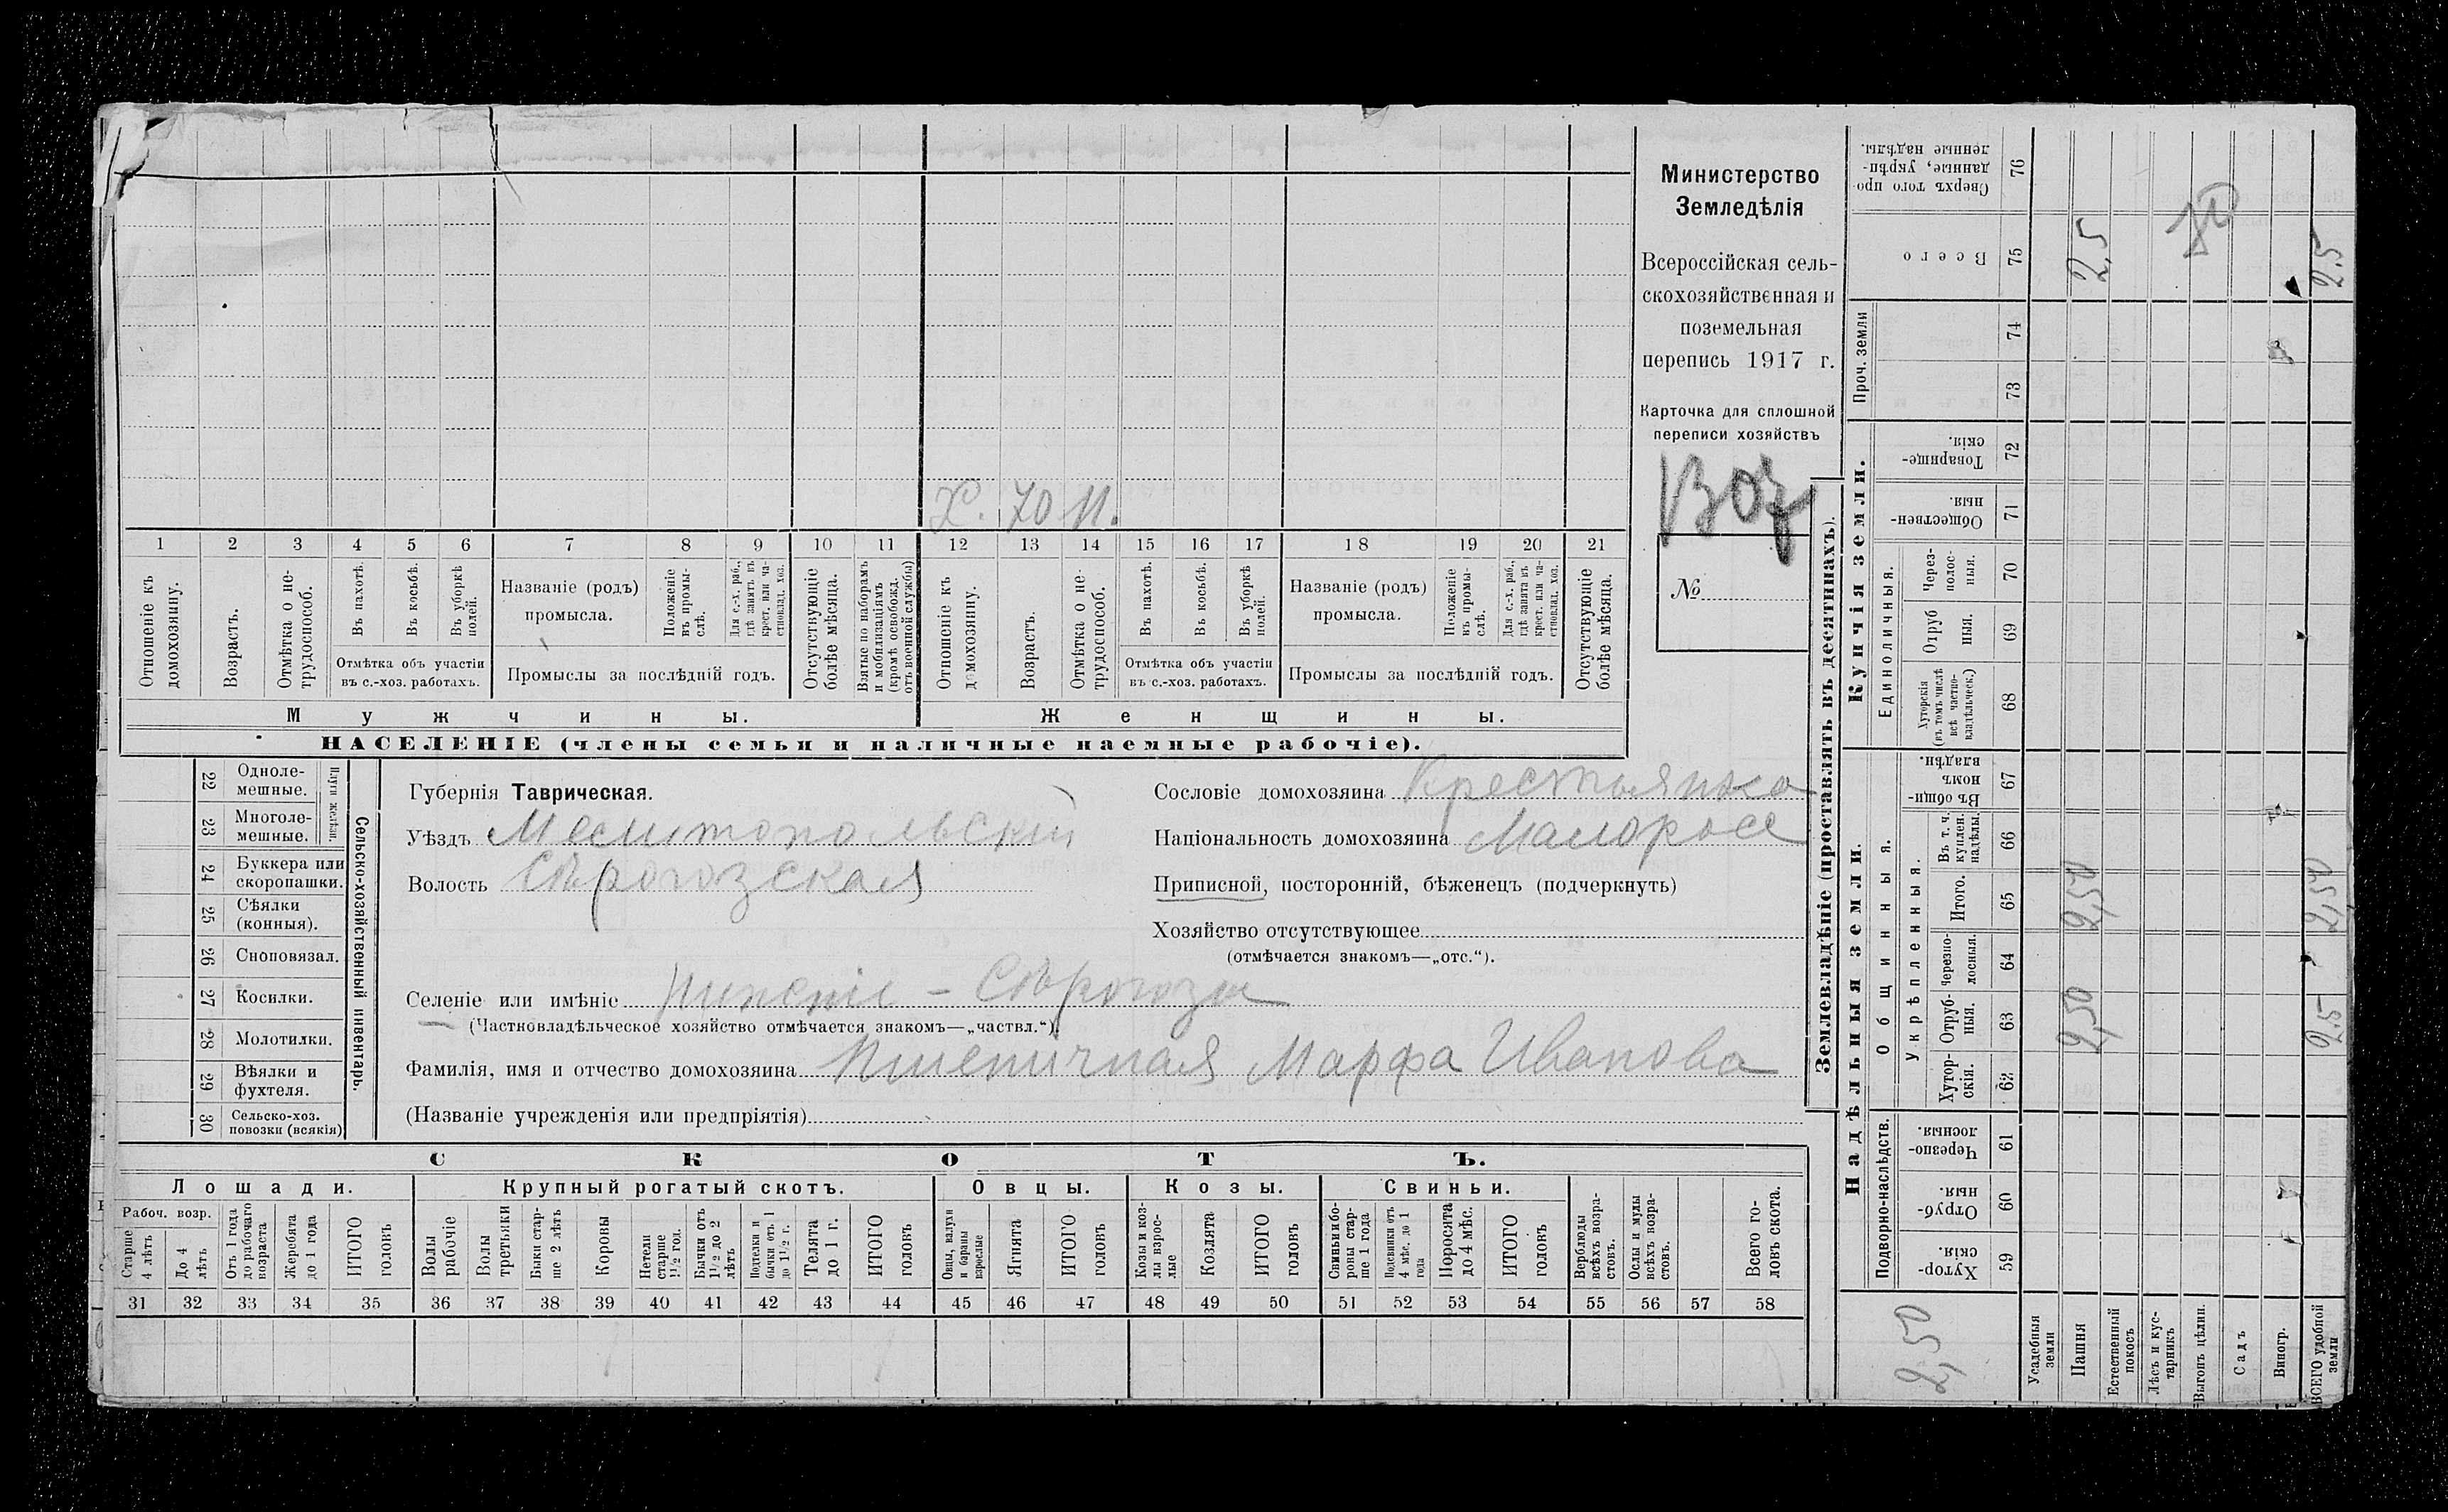 Х. 70 н.
1 2 3 4 5 6 7 8 9 10 11 12 13 14 15 16 17 18 19 20 21
Отношеніе къ домохозяину.
Возрастъ.
Отмѣтка о не-
трудоспособ.
Въ пахотѣ.
Въ косьбѣ.
Въ уборкѣ
полей.
Отмѣтка объ участіи
въ с.-хоз. работахъ.
Названіе (родъ)
промысла.
Положеніе
въ промы-
слѣ.
Для с.-х. раб.,
гдѣ занятъ въ
крест. или ча-
стновлад. хоз.
Промыслы за послѣдній годъ.
Отсутствующіе
болѣе мѣсяца.
Взятые по наборамъ
и мобилизаціямъ
(кромѣ освобожд.
отъ военной службы)
Отношеніе къ
домохозяину.
Возрастъ.
Отмѣтка о не-
трудоспособ.
Въ пахотѣ.
Въ косьбѣ.
Въ уборкѣ
полей.
Отмѣтка объ участіи
въ с.-хоз. работахъ.
Названіе (родъ)
промысла.
Положеніе
въ промы-
слѣ.
Для с.-х. раб.,
гдѣ занята въ
крест. или ча-
стновлад. хоз.
Промыслы за послѣдній годъ.
Отсутствующіе
болѣе мѣсяца.
Мужчины.
Женщины.
НАСЕЛЕНІЕ (члены семьи и наличные наемные рабочіе).
Министерство
Земледѣлія
Всероссійская сель-
скохозяйственная и
поземельная
перепись 1917 г.
Карточка для сплошной
переписи хозяйствъ
№
22 Одноле-
мешные.
23 Многоле-
мешные.
24 Буккера или
скоропашки.
25 Сѣялки
(конныя).
26 Сноповязал.
27 Косилки.
28 Молотилки.
29 Вѣялки и
фухтеля.
30 Сельско-хоз.
повозки (всякія)
Сельско-хозяйственный инвентарь.
Губернія Таврическая.
Уѣздъ Мелитопольскій
Волость Сѣрогозская
Сословіе домохозяина Крестьянка
Національность домохозяина Малоросс
Приписной, посторонній, бѣженецъ (подчеркнуть)
Хозяйство отсутствующее
(отмѣчается знакомъ—„отс.“).
Селеніе или имѣніе Нижніе - Сѣрогозы
(Частновладѣльческое хозяйство отмѣчается знакомъ—„частвл.“).
Фамилія, имя и отчество домохозяина Пшенична́я Марфа Иванова
(Названіе учрежденія или предпріятія)
СКОТЪ.
Лошади.
Крупный рогатый скотъ.
Овцы.
Козы.
Свиньи.
Рабоч. возр.
Старше
4 лѣтъ
До 4
лѣтъ
Отъ 1 года
до рабочаго
возраста
Жеребята
до 1 года
ИТОГО
головъ
Волы
рабочіе
Волы
третьяки
Быки стар-
ше 2 лѣтъ
Коровы
Нетели
старше
1 1/2 год.
Бычки отъ
1 1/2 до 2
лѣтъ
Подтелки и
бычки отъ 1
до 1 1/2 г.
Телята
до 1 г.
ИТОГО
головъ
Овцы, валухи
и бараны
взрослые
Ягнята
ИТОГО
головъ
Козы и коз-
лы взрос-
лые
Козлята
ИТОГО
головъ
Свиньи и бо-
ровы стар-
ше 1 года
Подсвинки отъ
4 мѣс. до 1
года
Поросята
до 4 мѣс.
ИТОГО
головъ
Верблюды
всѣхъ возра-
стовъ.
Ослы и мулы
всѣхъ возра-
стовъ.
Всего го-
ловъ скота.
31 32 33 34 35 36 37 38 39 40 41 42 43 44 45 46 47 48 49 50 51 52 53 54 55 56 57 58
Землевладѣніе (проставлять въ десятинахъ).
Надѣльныя земли.
Купчія земли.
Проч. земли
Подворно-наслѣдств.
Общинныя.
Укрѣпленныя.
Единоличныя.
Хутор-
скія. 59
Отруб-
ныя. 60
Черезпо-
лосныя. 61
Хутор-
скія. 62
Отруб-
ныя. 63
Черезпо-
лосныя. 64
Итого. 65
Въ т. ч.
куплен.
надѣлы. 66
Въ общи-
номъ
владѣн. 67
Хуторскія
(въ томъ числѣ
всѣ частно-
владѣльческ.) 68
Отруб
ныя. 69
Через-
полос-
ныя. 70
Обществен-
ныя. 71
Товарище-
скія. 72
73
74
Всего 75
Сверхъ того про-
данные, укрѣп-
ленные надѣлы. 76
2,50
Усадебныя
земли
Пашня
2,50 2,50 2,5
Естественный
покосъ
Лѣсъ и кус-
тарникъ
Выгонъ цѣлин.
Садъ
Виногр.
ВСЕГО удобной
земли
2,5 2,50 2.5